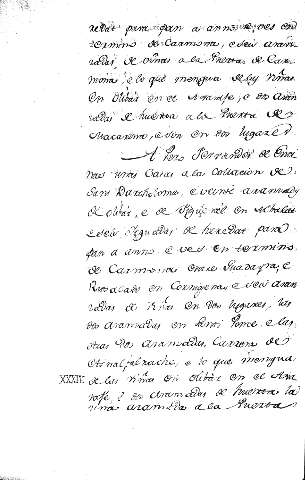 redat para pan a anno e ves en
termino de Carmona, e seis aran
zadas, de viñas a la Puerta de Car
mona, e lo que mengua de las viñas
en olibar en el Axarafe, e dos aran
zadas de huerta a la Puerta de
Macarena, e son en dos lugares
A Pero Ferrandez de
unas Casas a la collacion de
Sant Bartholome, e veinte aranzadas
de olibar, e de Figueral en
e seis Yugadas de heredat para
pan a anno e ves en termino
de Carmona entre Guadayra, e
en e seis aran
zadas de viñas en dos lugares, las
dos aranzadas en Sant Ponce e las
otras dos aranzadas, Carrera de
e lo que mengua
XXXIV. de las viñas en olibar en el Axa
rafe, e dos aranzadas de huerta la
una aranzada a la Puerta